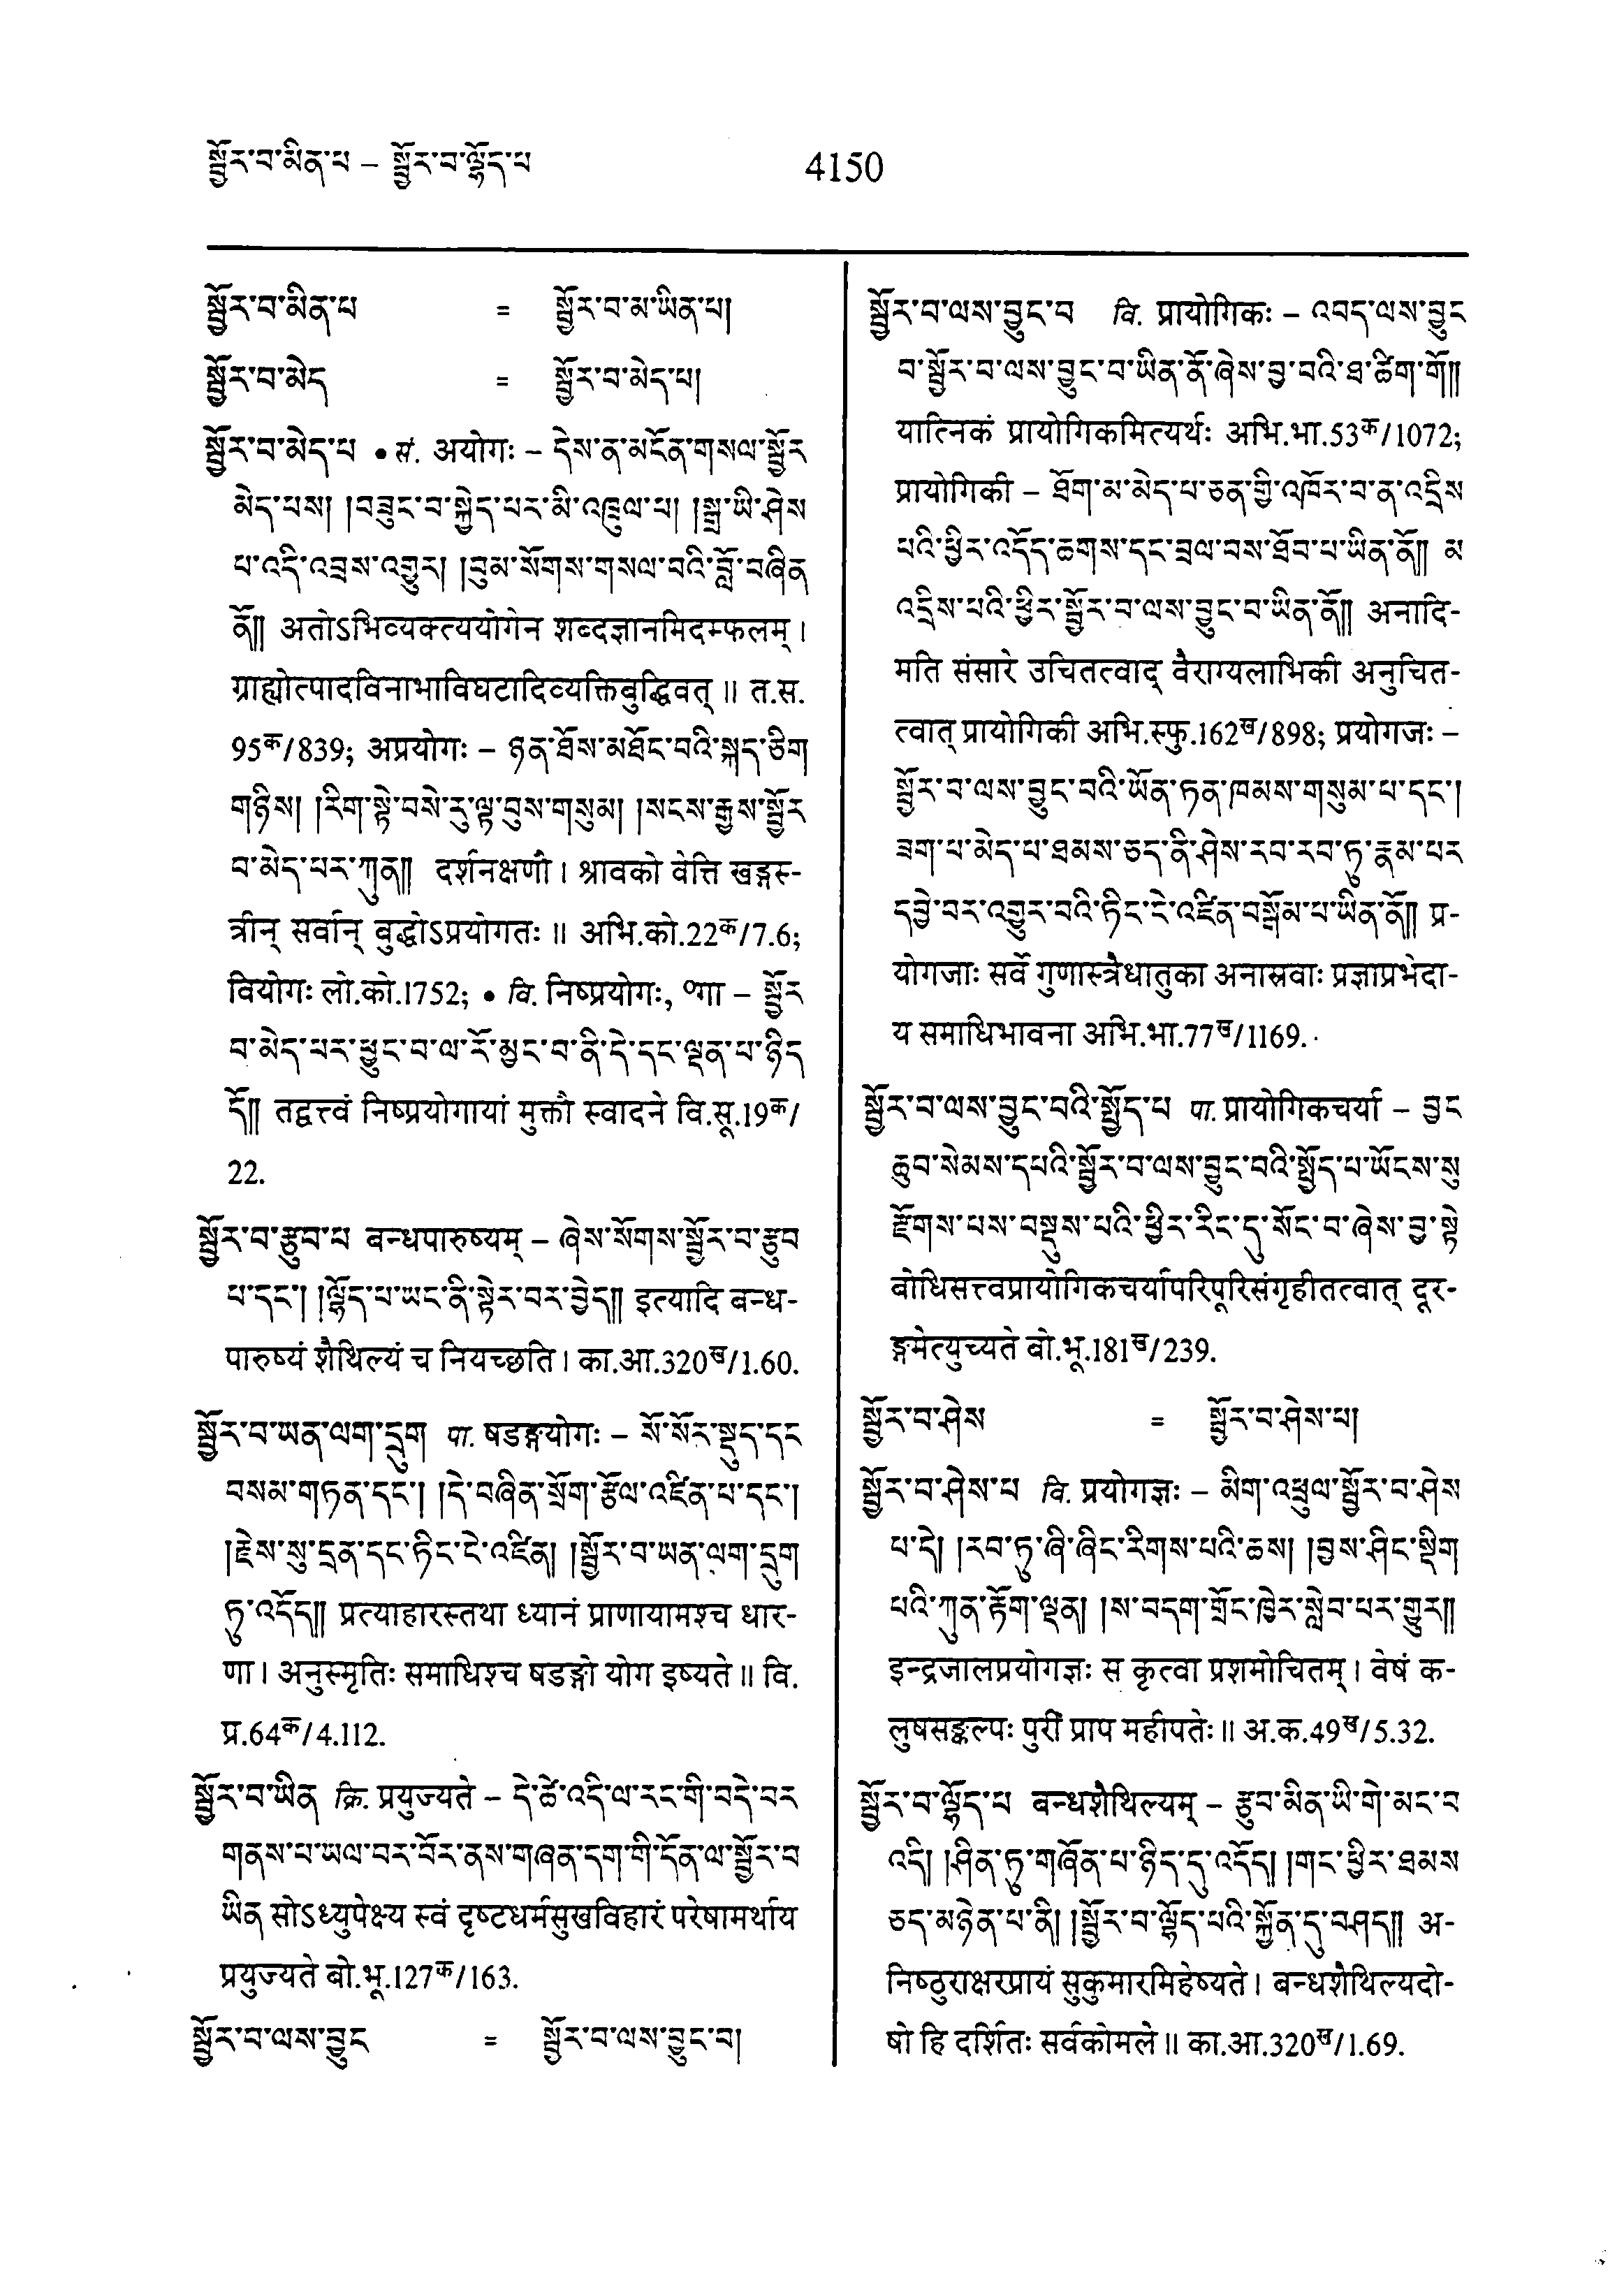 སྦྱོར་བ་མིན་པ – སྦྱོར་བ་ལྷོད་པ 4150
སྦྱོར་བ་མིན་པ = སྦྱོར་བ་མ་ཡིན་པ།
སྦྱོར་བ་མེད = སྦྱོར་བ་མེད་པ།
སྦྱོར་བ་མེད་པ • सं. अयोगः – དེས་ན་མངོན་གསལ་སྦྱོར
མེད་པས། །བཟུང་བ་སྐྱེད་པར་མི་འཁྲུལ་པ། །སྒྲ་ཡི་ཤེས
པ་འདི་འབྲས་འགྱུར། །བུམ་སོགས་གསལ་བའི་བློ་བཞིན
ནོ།། अतोऽभिव्यक्त्ययोगेन शब्दज्ञानमिदम्फलम् ।
ग्राह्योत्पादविनाभाविघटादिव्यक्तिबुद्धिवत् ॥ त.स.
95क/839; अप्रयोगः – ཉན་ཐོས་མཐོང་བའི་སྐད་ཅིག
གཉིས། །རིག་སྟེ་བསེ་རུ་ལྟ་བུས་གསུམ། །སངས་རྒྱས་སྦྱོར
བ་མེད་པར་ཀུན།། दर्शनक्षणौ । श्रावको वेत्ति खड्गस्-
त्रीन् सर्वान् बुद्धोऽप्रयोगतः ॥ अभि.को.22क/7.6;
वियोगः लो.को.1752; • वि. निष्प्रयोगः, ॰गा – སྦྱོར
བ་མེད་པར་ཕྱུང་བ་ལ་རོ་མྱང་བ་ནི་དེ་དང་ལྡན་པ་ཉིད
དོ།། तद्वत्त्वं निष्प्रयोगायां मुक्तौ स्वादने वि.सू.19क/
22.
སྦྱོར་བ་རྩུབ་པ बन्धपारुष्यम् – ཞེས་སོགས་སྦྱོར་བ་རྩུབ
པ་དང་། །ལྷོད་པ་ཡང་ནི་སྟེར་བར་བྱེད།། इत्यादि बन्ध-
पारुष्यं शैथिल्यं च नियच्छति । का.आ.320ख/1.60.
སྦྱོར་བ་ཡན་ལག་དྲུག पा. षडङ्गयोगः – སོ་སོར་སྡུད་དང
བསམ་གཏན་དང་། །དེ་བཞིན་སྲོག་རྩོལ་འཛིན་པ་དང་།
།རྗེས་སུ་དྲན་དང་ཏིང་ངེ་འཛིན། །སྦྱོར་བ་ཡན་ལག་དྲུག
ཏུ་འདོད།། प्रत्याहारस्तथा ध्यानं प्राणायामश्च धार-
णा । अनुस्मृतिः समाधिश्च षडङ्गो योग इष्यते ॥ वि.
प्र.64क/4.112.
སྦྱོར་བ་ཡིན क्रि. प्रयुज्यते – དེ་ཚེ་འདི་ལ་རང་གི་བདེ་བར
གནས་པ་ཡལ་བར་བོར་ནས་གཞན་དག་གི་དོན་ལ་སྦྱོར་བ
ཡིན सोऽध्युपेक्ष्य स्वं दृष्टधर्मसुखविहारं परेषामर्थाय
प्रयुज्यते बो.भू.127क/163.
སྦྱོར་བ་ལས་བྱུང = སྦྱོར་བ་ལས་བྱུང་བ།
སྦྱོར་བ་ལས་བྱུང་བ वि. प्रायोगिकः – འབད་ལས་བྱུང
བ་སྦྱོར་བ་ལས་བྱུང་བ་ཡིན་ནོ་ཞེས་བྱ་བའི་ཐ་ཚིག་གོ།།
यात्निकं प्रायोगिकमित्यर्थः अभि.भा.53क/1072;
प्रायोगिकी – ཐོག་མ་མེད་པ་ཅན་གྱི་འཁོར་བ་ན་འདྲིས
པའི་ཕྱིར་འདོད་ཆགས་དང་བྲལ་བས་ཐོབ་པ་ཡིན་ནོ།། མ
འདྲིས་པའི་ཕྱིར་སྦྱོར་བ་ལས་བྱུང་བ་ཡིན་ནོ།། अनादि-
मति संसारे उचितत्वाद् वैराग्यलाभिकी अनुचित-
त्वात् प्रायोगिकी अभि.स्फु.162ख/898; प्रयोगजः –
སྦྱོར་བ་ལས་བྱུང་བའི་ཡོན་ཏན་ཁམས་གསུམ་པ་དང་།
ཟག་པ་མེད་པ་ཐམས་ཅད་ནི་ཤེས་རབ་རབ་ཏུ་རྣམ་པར
དབྱེ་བར་འགྱུར་བའི་ཏིང་ངེ་འཛིན་བསྒོམ་པ་ཡིན་ནོ།། प्र-
योगजाः सर्वे गुणास्त्रैधातुका अनास्रवाः प्रज्ञाप्रभेदा-
य समाधिभावना अभि.भा.77ख/1169.
སྦྱོར་བ་ལས་བྱུང་བའི་སྤྱོད་པ पा. प्रायोगिकचर्या – བྱང
ཆུབ་སེམས་དཔའི་སྦྱོར་བ་ལས་བྱུང་བའི་སྤྱོད་པ་ཡོངས་སུ
རྫོགས་པས་བསྡུས་པའི་ཕྱིར་རིང་དུ་སོང་བ་ཞེས་བྱ་སྟེ
बोधिसत्त्वप्रायोगिकचर्यापरिपूरिसंगृहीतत्वात् दूर-
ङ्गमेत्युच्यते बो.भू.181ख/239.
སྦྱོར་བ་ཤེས = སྦྱོར་བ་ཤེས་པ།
སྦྱོར་བ་ཤེས་པ वि. प्रयोगज्ञः – མིག་འཕྲུལ་སྦྱོར་བ་ཤེས
པ་དེ། །རབ་ཏུ་ཞི་ཞིང་རིགས་པའི་ཆས། །བྱས་ཤིང་སྡིག
པའི་ཀུན་རྟོག་ལྡན། །ས་བདག་གྲོང་ཁྱེར་སླེབ་པར་གྱུར།།
इन्द्रजालप्रयोगज्ञः स कृत्वा प्रशमोचितम् । वेषं क-
लुषसङ्कल्पः पुरीं प्राप महीपतेः ॥ अ.क.49ख/5.32.
སྦྱོར་བ་ལྷོད་པ बन्धशैथिल्यम् – རྩུབ་མིན་ཡི་གེ་མང་བ
འདི། །ཤིན་ཏུ་གཞོན་པ་ཉིད་དུ་འདོད། །གང་ཕྱིར་ཐམས
ཅད་མཉེན་པ་ནི། །སྦྱོར་བ་ལྷོད་པའི་སྐྱོན་དུ་བཤད།། अ-
निष्ठुराक्षरप्रायं सुकुमारमिहेष्यते । बन्धशैथिल्यदो-
षो हि दर्शितः सर्वकोमले ॥ का.आ.320ख/1.69.